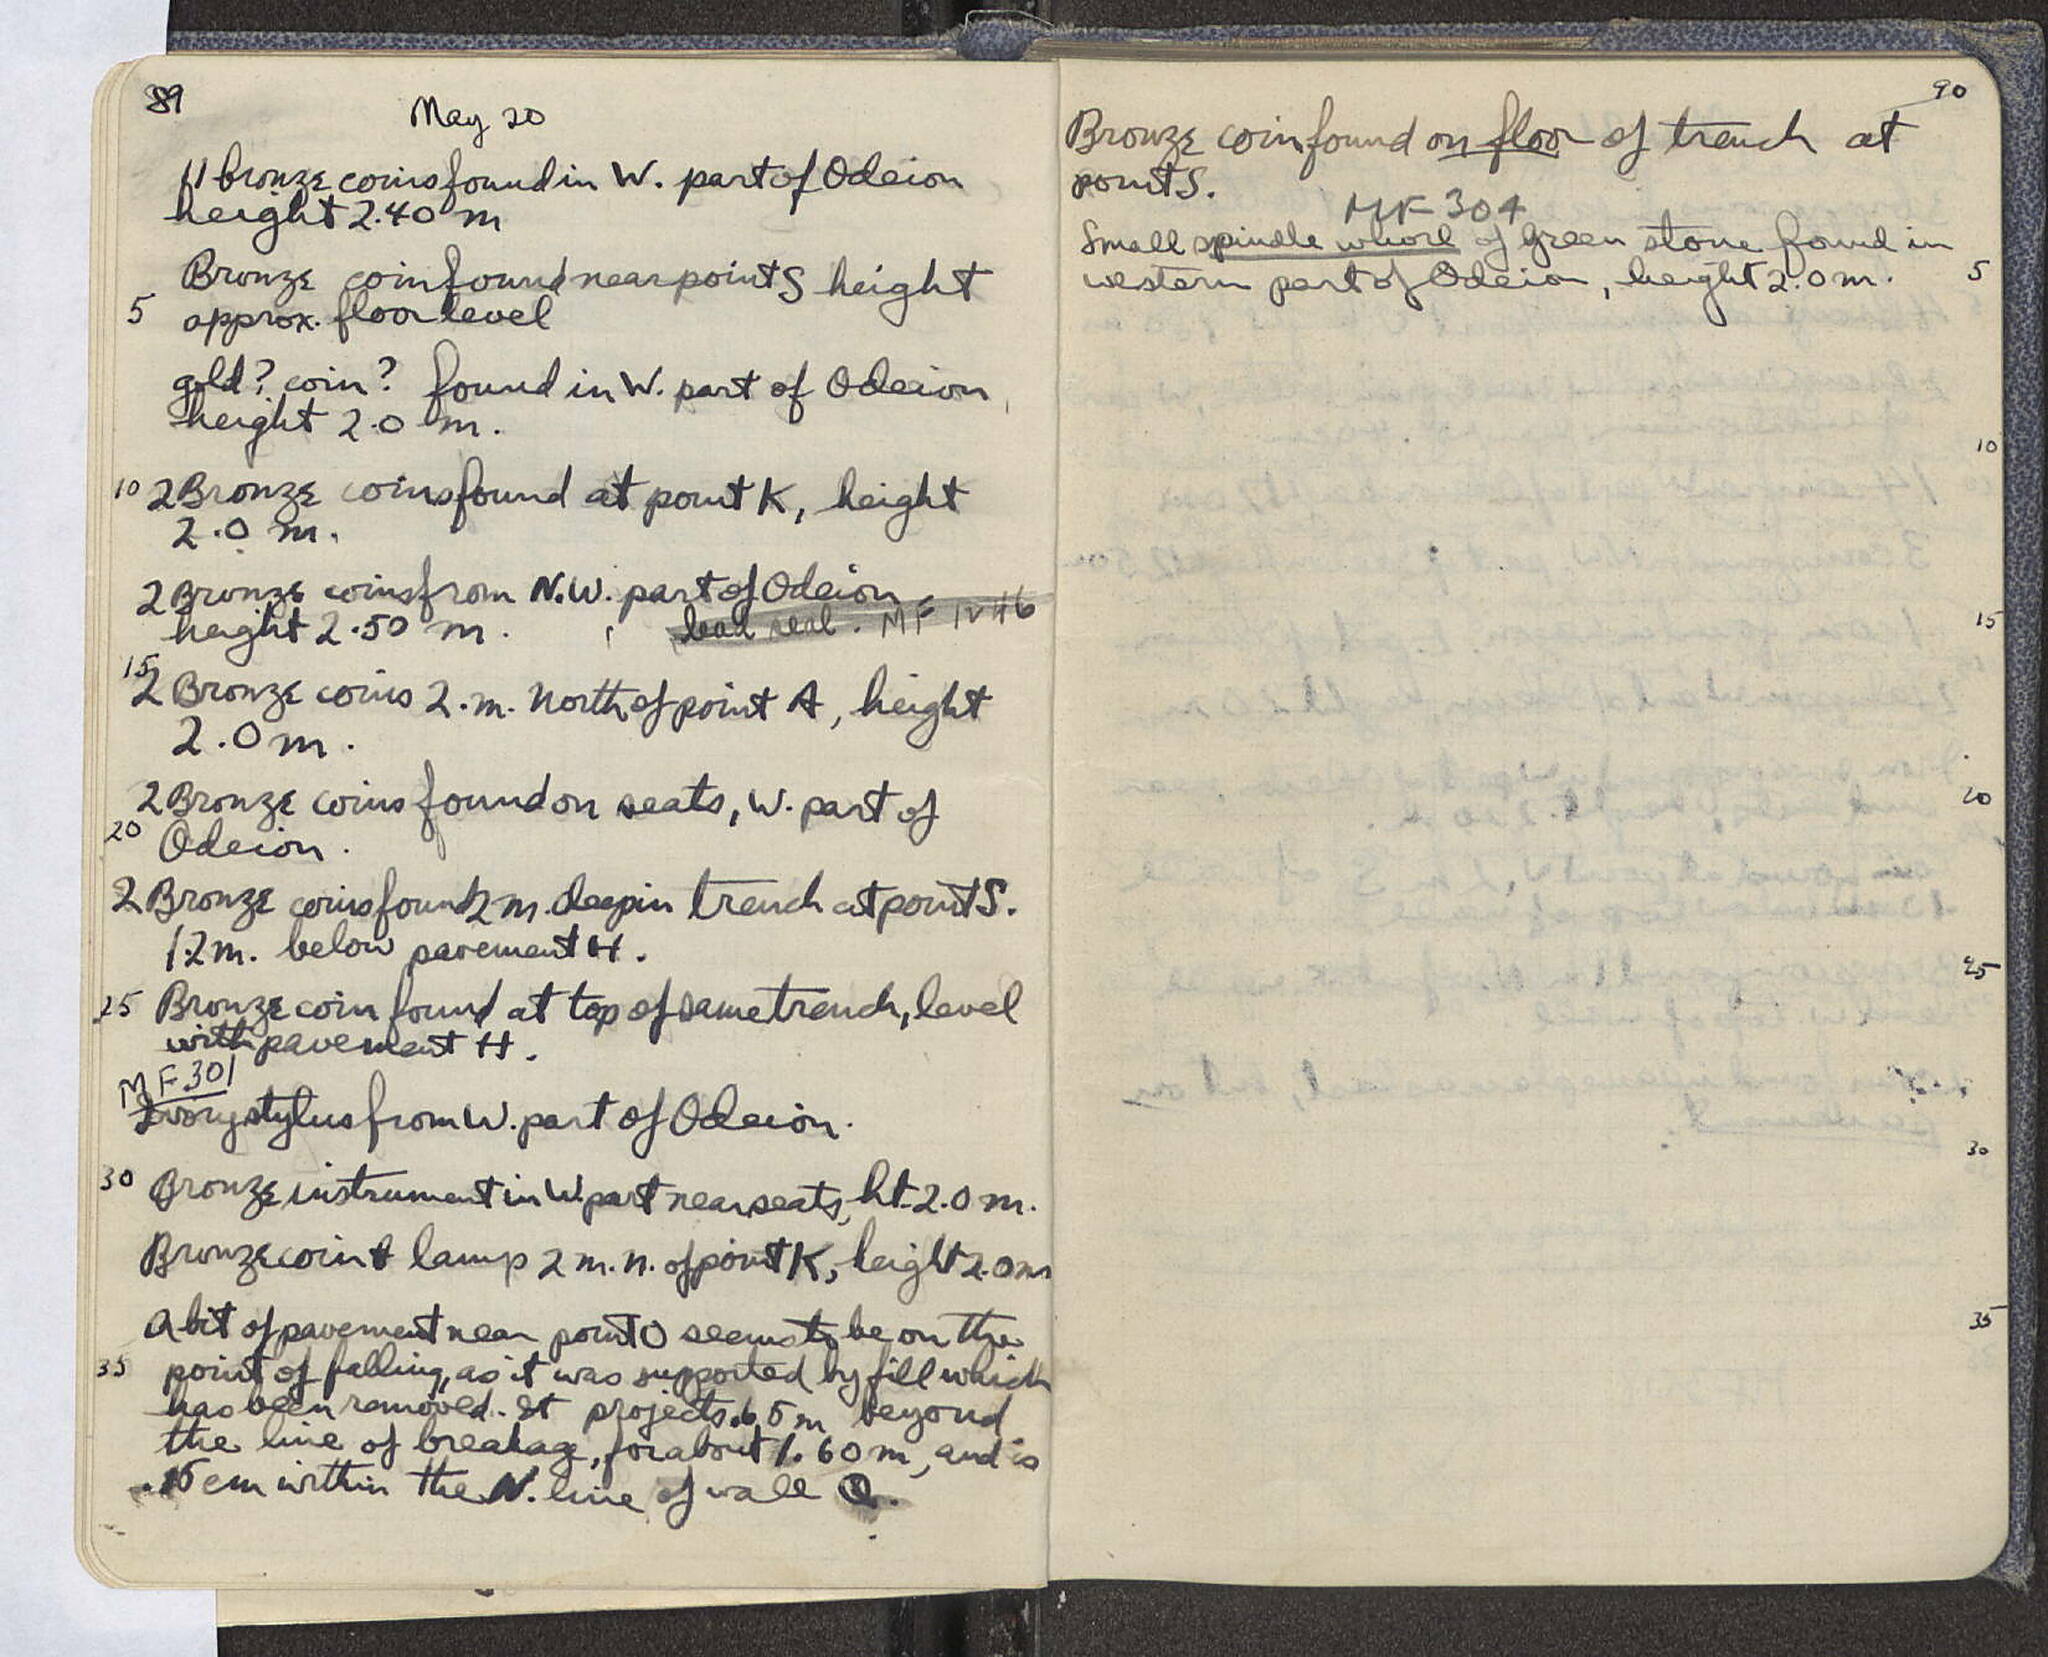 89
May 20
11 bronze coins found in W. part of Odeion
height 2.40 m
Bronze coin found near point S height
5 approx. floor level
gold? coin? found in W. part of Odeion,
height 2.0 m.
10 2 Bronze coins found at point K, height
2.0 m.
2 Bronze coins from N.W. part of Odeion
height 2.50 m. lead seal. MF
15
2 Bronze coins 2.m. North of point A, height
2.0 m.
2 Bronze coins found on seats, W. part of
20 Odeion.
2 Bronze coins found 2 m. deep in trench at point S.
1.2 m. below pavement H.
25 Bronze coin found at top of same trench, level
with pavement H.
MF 301
Ivory stylus from W. part of Odeion.
30 Bronze instrument in W. part near seats, ht. 2.0 m.
Bronze coin + lamp 2 m. n. of point K, height 2.0 m
A bit of pavement near point O seems to be on the
35 point of falling, as it was supported by fill which
has been removed. It projects .65 m beyond
the line of breakage, for about 1.60 m, and is
.15 cm within the N. line of wall Q.
90
Bronze coin found on floor of trench at
point S.
MF 304
Small spindle whorl of green stone found in
western part of Odeion, height 2.0 m. 5
10
15
20
25
30
35